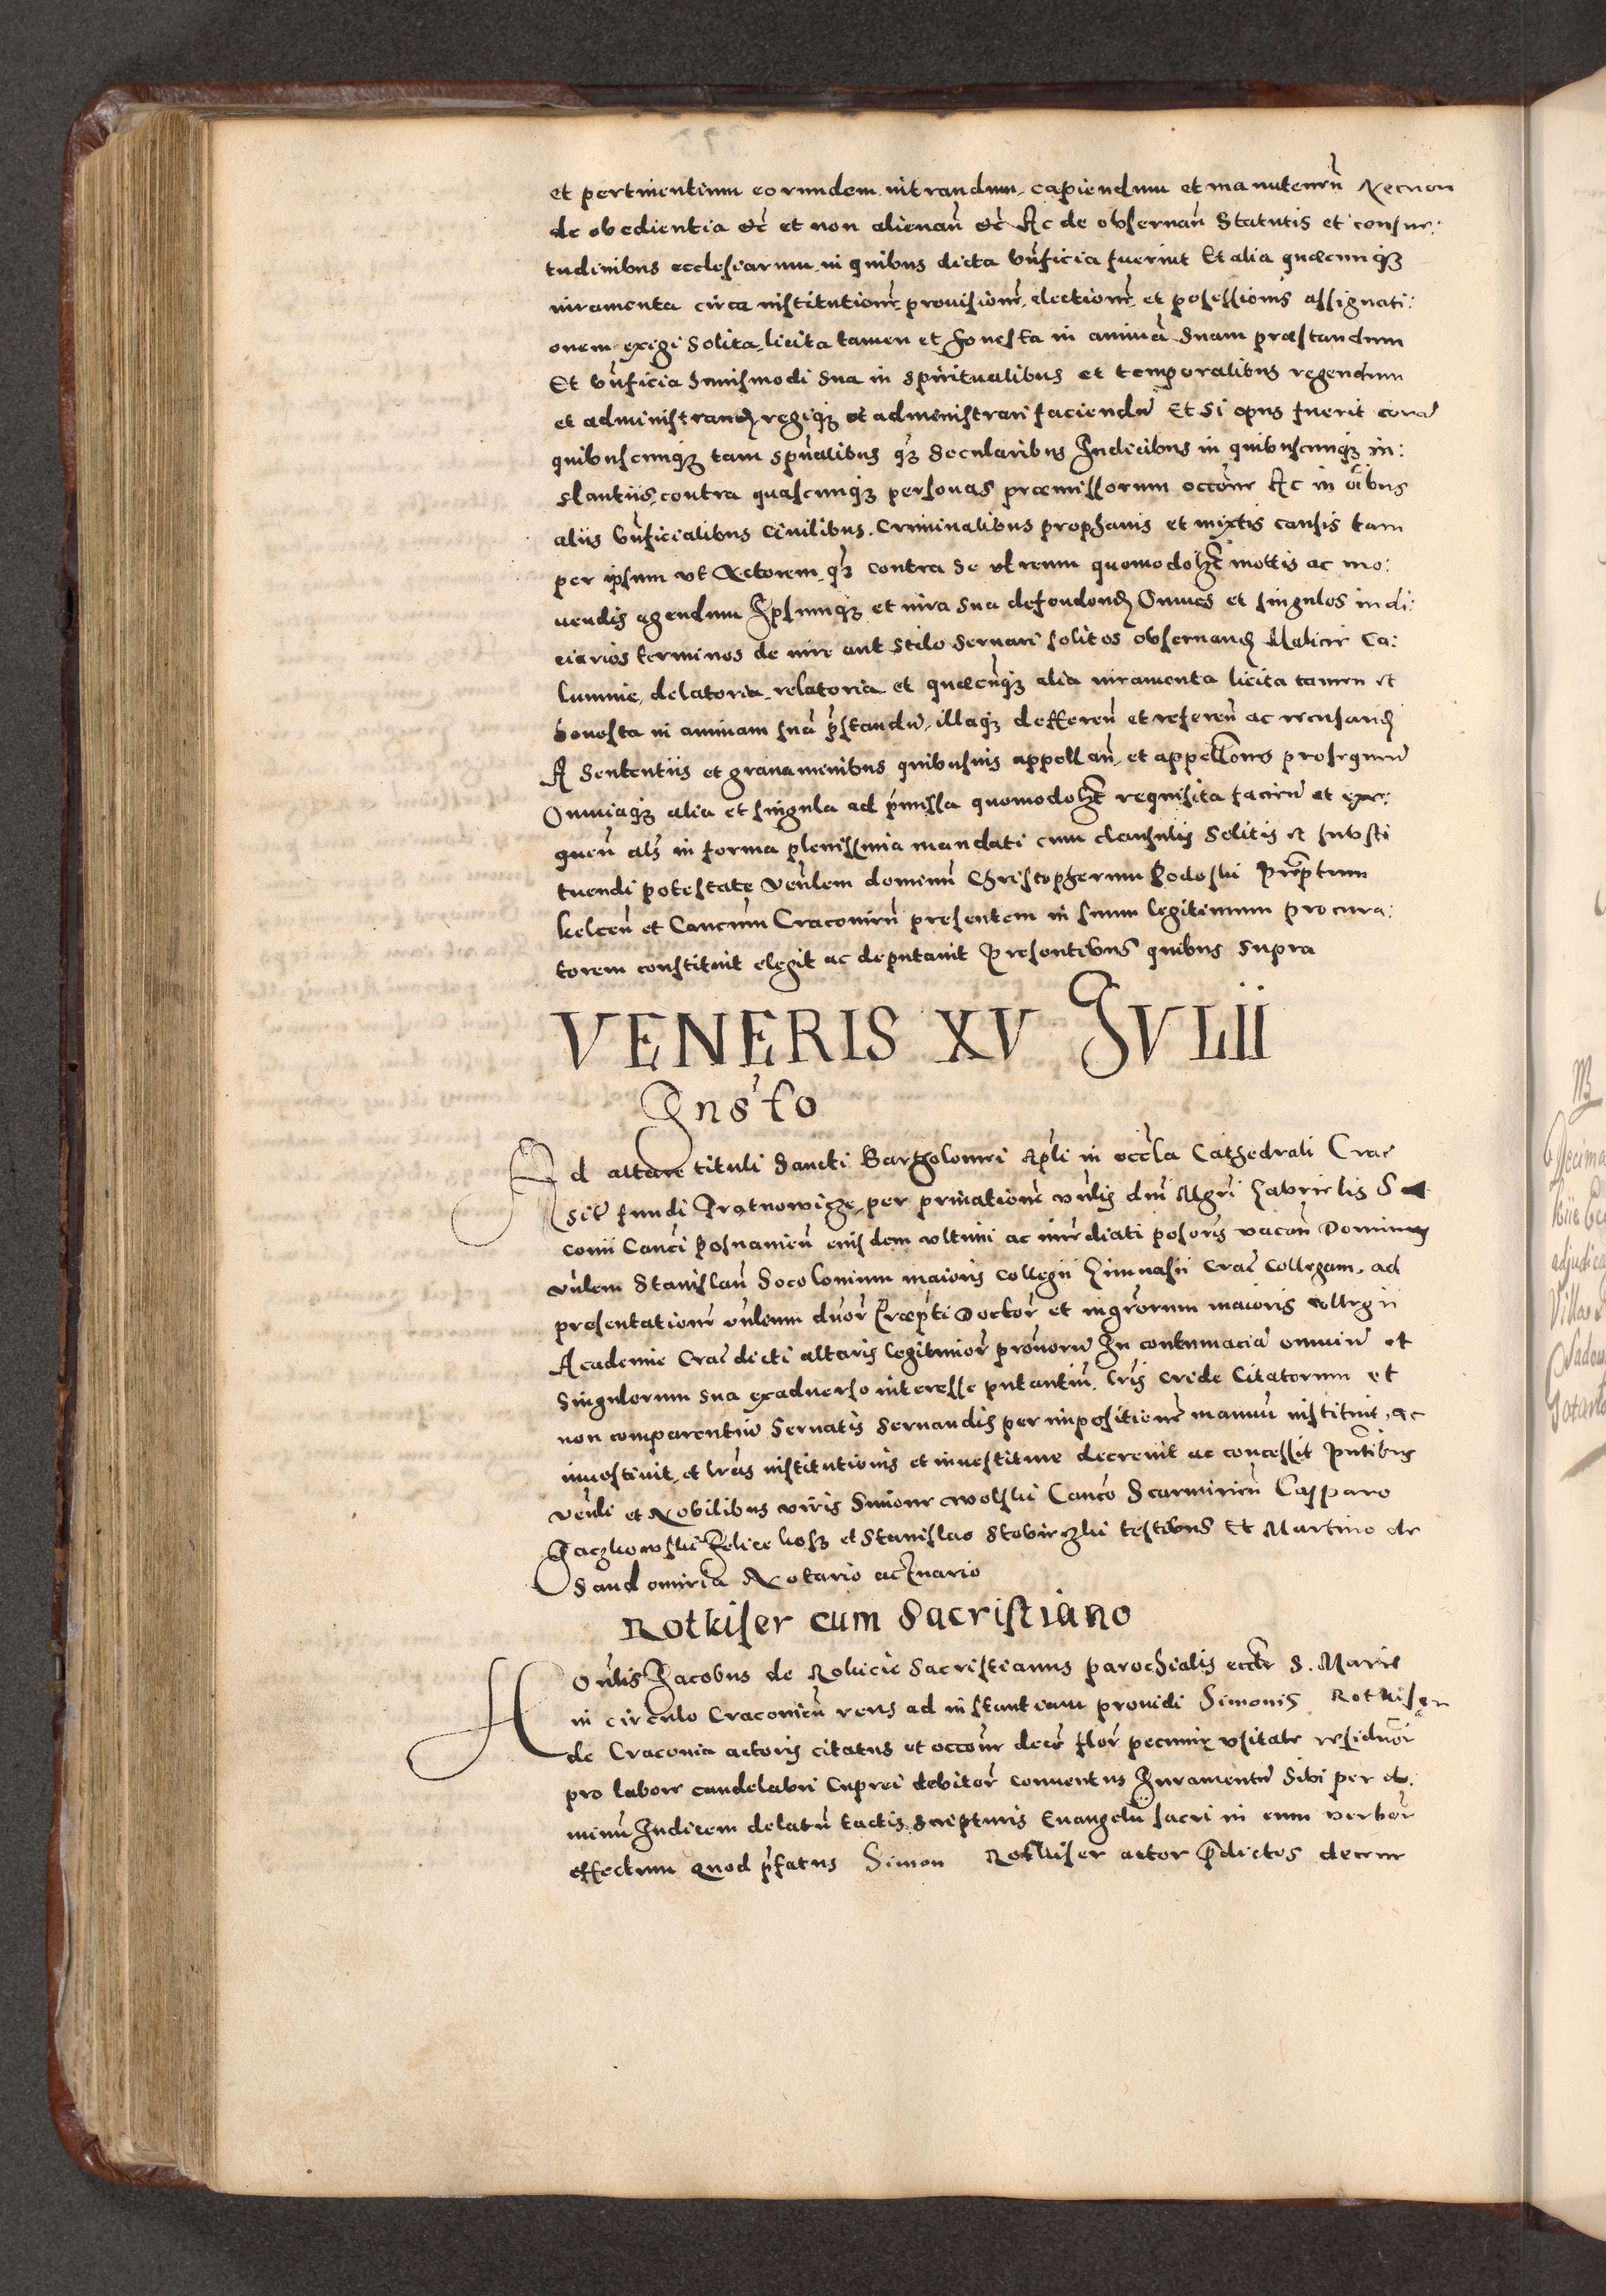 et pertinentium eorundem intrandum, capiendum et manutenen̄ Necnon
de obedientia &c̄ et non alienan̄ &c̄ Ac de obseruan̄ Statutis et consue:
tudinibus ecclesiarum, in quibus dicta b̄nficia fuerint Et alia quæcunq3
iuramenta circa institutionē, prouisionē, electionē, et posessionis assignati:
onem exigi solita, licita tamen et honesta in animā suam præstandum
Et b̄nficia huiusmodi sua in spiritualibus et temporalibus regendum
et administrand, regiq3 et administrari faciendū Et si opus fuerit corā
quibuscunq3 tam spūalibus q3 secularibus Iudicibus in quibuscunq3 in:
stantiis, contra quascunq3 personas præmissorum occōne Ac in oībus
aliis b̄nficialibus Ciuilibus. Criminalibus prophanis et mixtis causis tam
per ipsum vt Actorem, q3 contra se vt reum quomodolz̄ mottis ac mo:
uendis agendum Ipsumq3 et iura sua defendend Omnes et singulos iudi:
ciarios terminos de iure aut stilo seruari solitos obseruand Malicie Ca:
lumnie, delatoria, relatoria et quæcūq3 alia iuramenta licita tamen et
honesta in animam suā p̄standū, illaq3 defferen̄ et referen̄ ac recusand
A sententiis et grauaminibus quibusuis appellan̄, et appellōnes prosequen̄
Omniaq3 alia et singula ad p̄missa quomodolz̄ requisita facien̄ et exe:
quen̄ als in forma plenissima mandati cum clausulis solitis et substi
tuendi potestate Ven̄lem dominū Christopherum Podoski Præptum
kelcen̄ et Canc̄um Cracouien̄ presentem in suum legitimum procura:
torem constituit elegit ac deputauit Presentibus quibus supra
VENERIS XV IVLII
Ins̄to
Ad altare tituli Sancti Bartholomei Ap̄li in eccl̄a Cathedrali Crac̄
sit̄ fundi Pratnowicze, per priuationē v̄nlis dn̄i Mgr̄i Gabrielis S
comii Canc̄i Posnanien̄ eiusdem vltimi ac immediati posoris vacan̄ Dominus
v̄nlem Stanislaū Socolonium maioris Collegii Gimnasii Crac̄ Collegam, ad
presentationē v̄nlium dn̄or̄ Præpti Doctor̄ et mgr̄orum maioris collegii
Academie Crac̄ dicti altaris legitimor̄ pronorū In contumaciā omniū et
Singulorum sua exaduerso interesse putantiū. lr̄is cride Citatorum et
non comparentiū Seruatis seruandis per impositionē manuū instituit, ac
inuestiuit, et lr̄as institutionis et inuestiture decreuit ac concessit Pn̄tibus
ven̄li et Nobilibus viris Simone Wolski Canco Scarmirien̄ Casparo
Iaczkowski Felice kosz et Stanislao Stobieczki testibus Et Martino de
Sandomiria Notario actuario
Rotkiser cum Sacristiano
Honorlis Iacobus de Rokicie Sacristianus parochialis eccl̄e S. Marie
in circulo Cracouien̄ reus ad instantiam prouidi Simonis Rotkiser
de Cracouia actoris citatus et occōne decē flor̄ pecunie vsitate residuor̄
pro labore candelabri Cuprei debitor̄ conuentus Iuramentū sibi per do:
minū Iudicem delatū tactis scripturis Euangelii sacri in eum verbor̄
effectum quod p̄fatus Simon Rotkiser actor p̄dictos decem